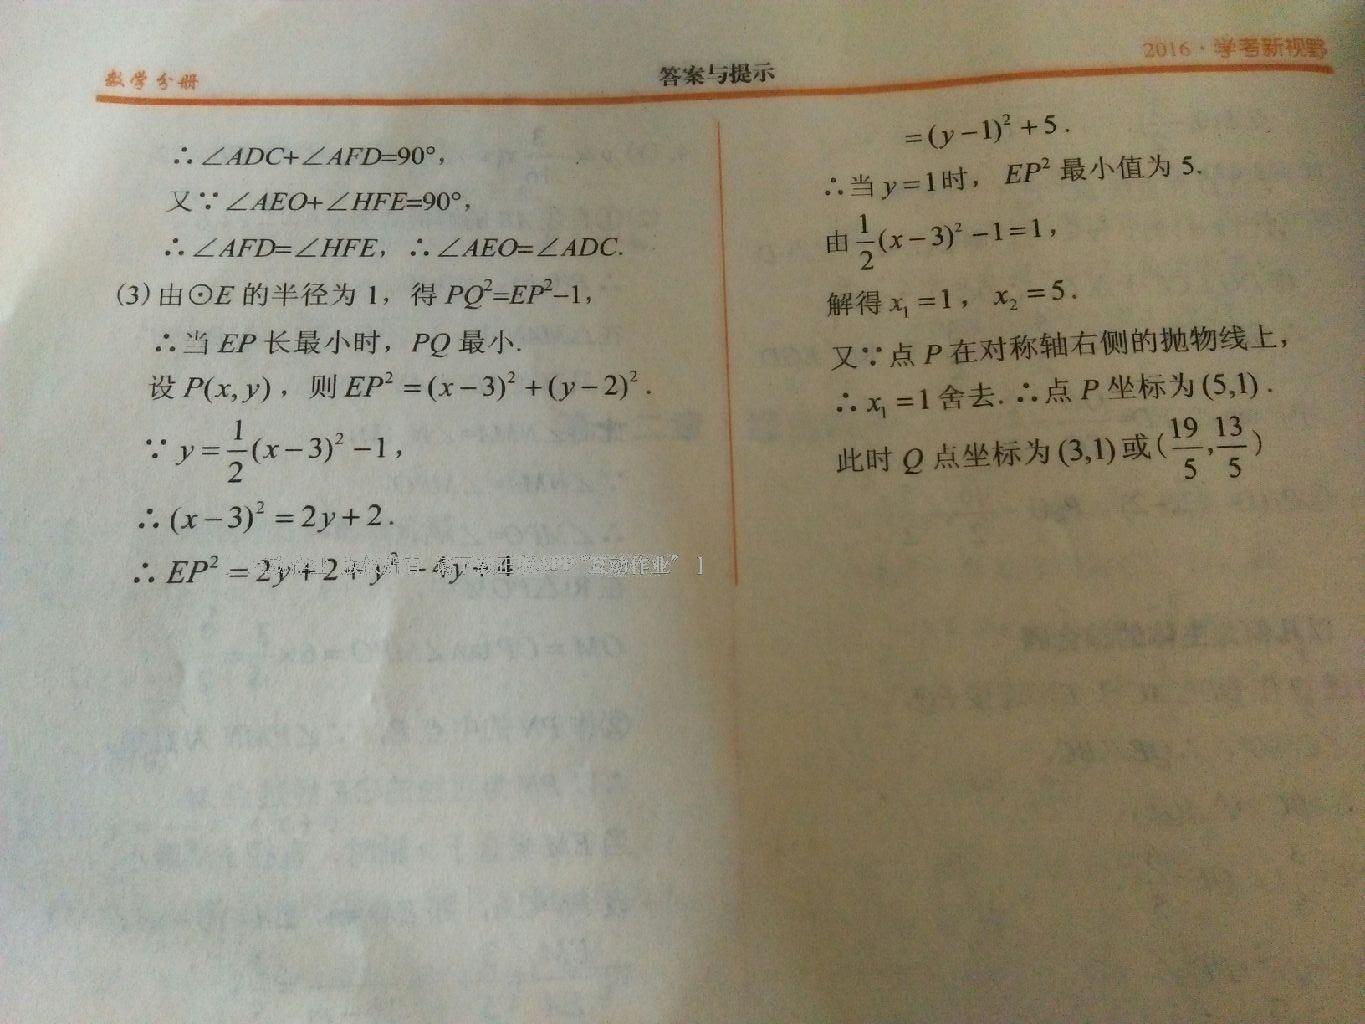 数学分册
答案与提示
2016·学考新视野
∴∠ADC+∠AFD=90°,
又∵∠AEO+∠HFE=90°,
∴∠AFD=∠HFE, ∴∠AEO=∠ADC.
(3)由⊙E的半径为1, 得PQ²=EP²−1,
∴当EP长最小时, PQ最小.
设P(x,y), 则EP²=(x−3)²+(y−2)².
∵y=1/2(x−3)²−1,
∴(x−3)²=2y+2.
∴EP²=2y+2+y²−4y+4
"互动作业" ]
=(y−1)²+5.
∴当y=1时, EP²最小值为5.
由1/2(x−3)²−1=1,
解得x₁=1, x₂=5.
又∵点P在对称轴右侧的抛物线上,
∴x₁=1舍去.∴点P坐标为(5,1).
此时Q点坐标为(3,1)或(19/5,13/5)